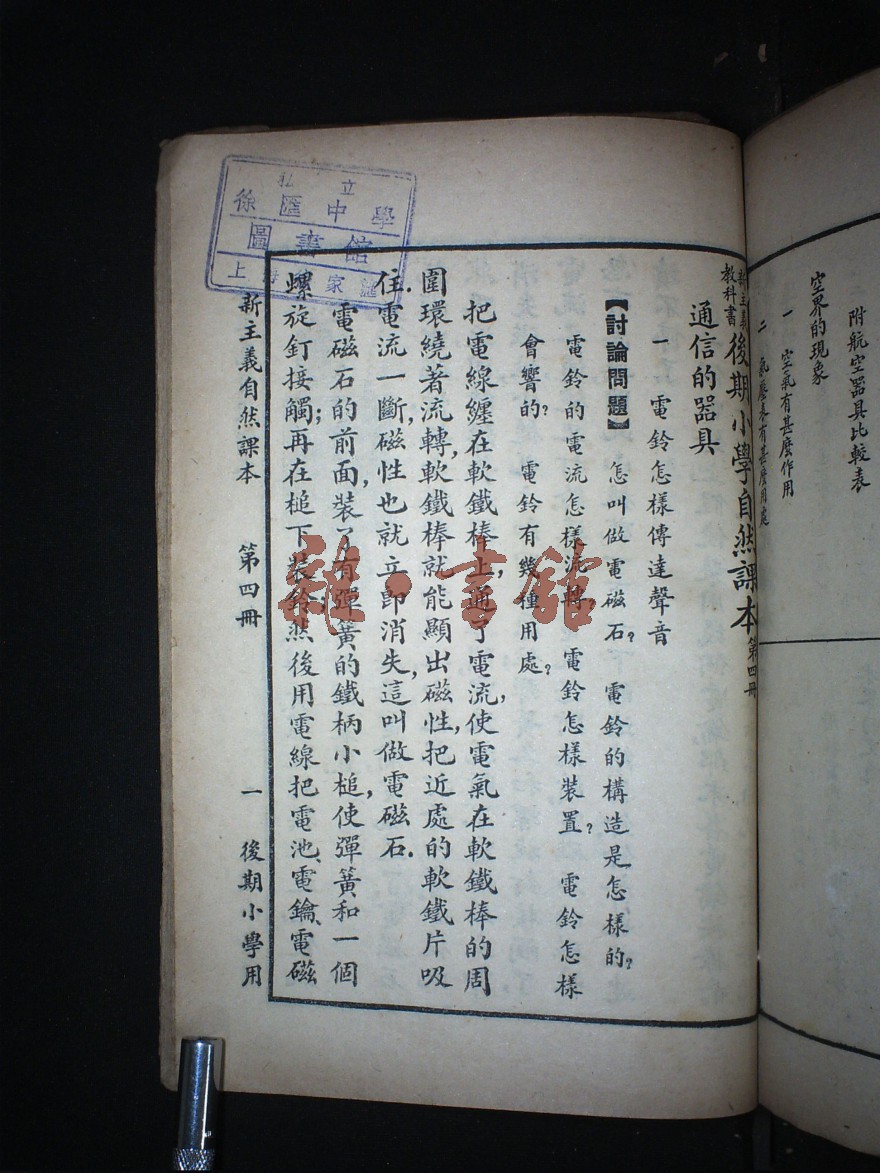 附航空器具比較表
空界的現象
一 空氣有甚麼作用
二 氣壓表有甚麼用處
新主義教科書 後期小學自然課本 第四冊
通信的器具
一 電鈴怎樣傳達聲音
【討論問題】 怎叫做電磁石？ 電鈴的構造是怎樣的？
電鈴的電流怎樣流轉？ 電鈴怎樣裝置？ 電鈴怎樣
會響的？ 電鈴有幾種用處？
把電線纏在軟鐵棒上，通了電流，使電氣在軟鐵棒的周
圍環繞著流轉，軟鐵棒就能顯出磁性，把近處的軟鐵片吸
住．電流一斷，磁性也就立卽消失，這叫做電磁石．
電磁石的前面，裝了有彈簧的鐵柄小槌，使彈簧和一個
螺旋釘接觸；再在槌下裝鈴．然後用電線把電池、電鑰、電磁
新主義自然課本 第四冊 一 後期小學用
私立
徐匯中學
圖書館
上海 家匯
雅·書館